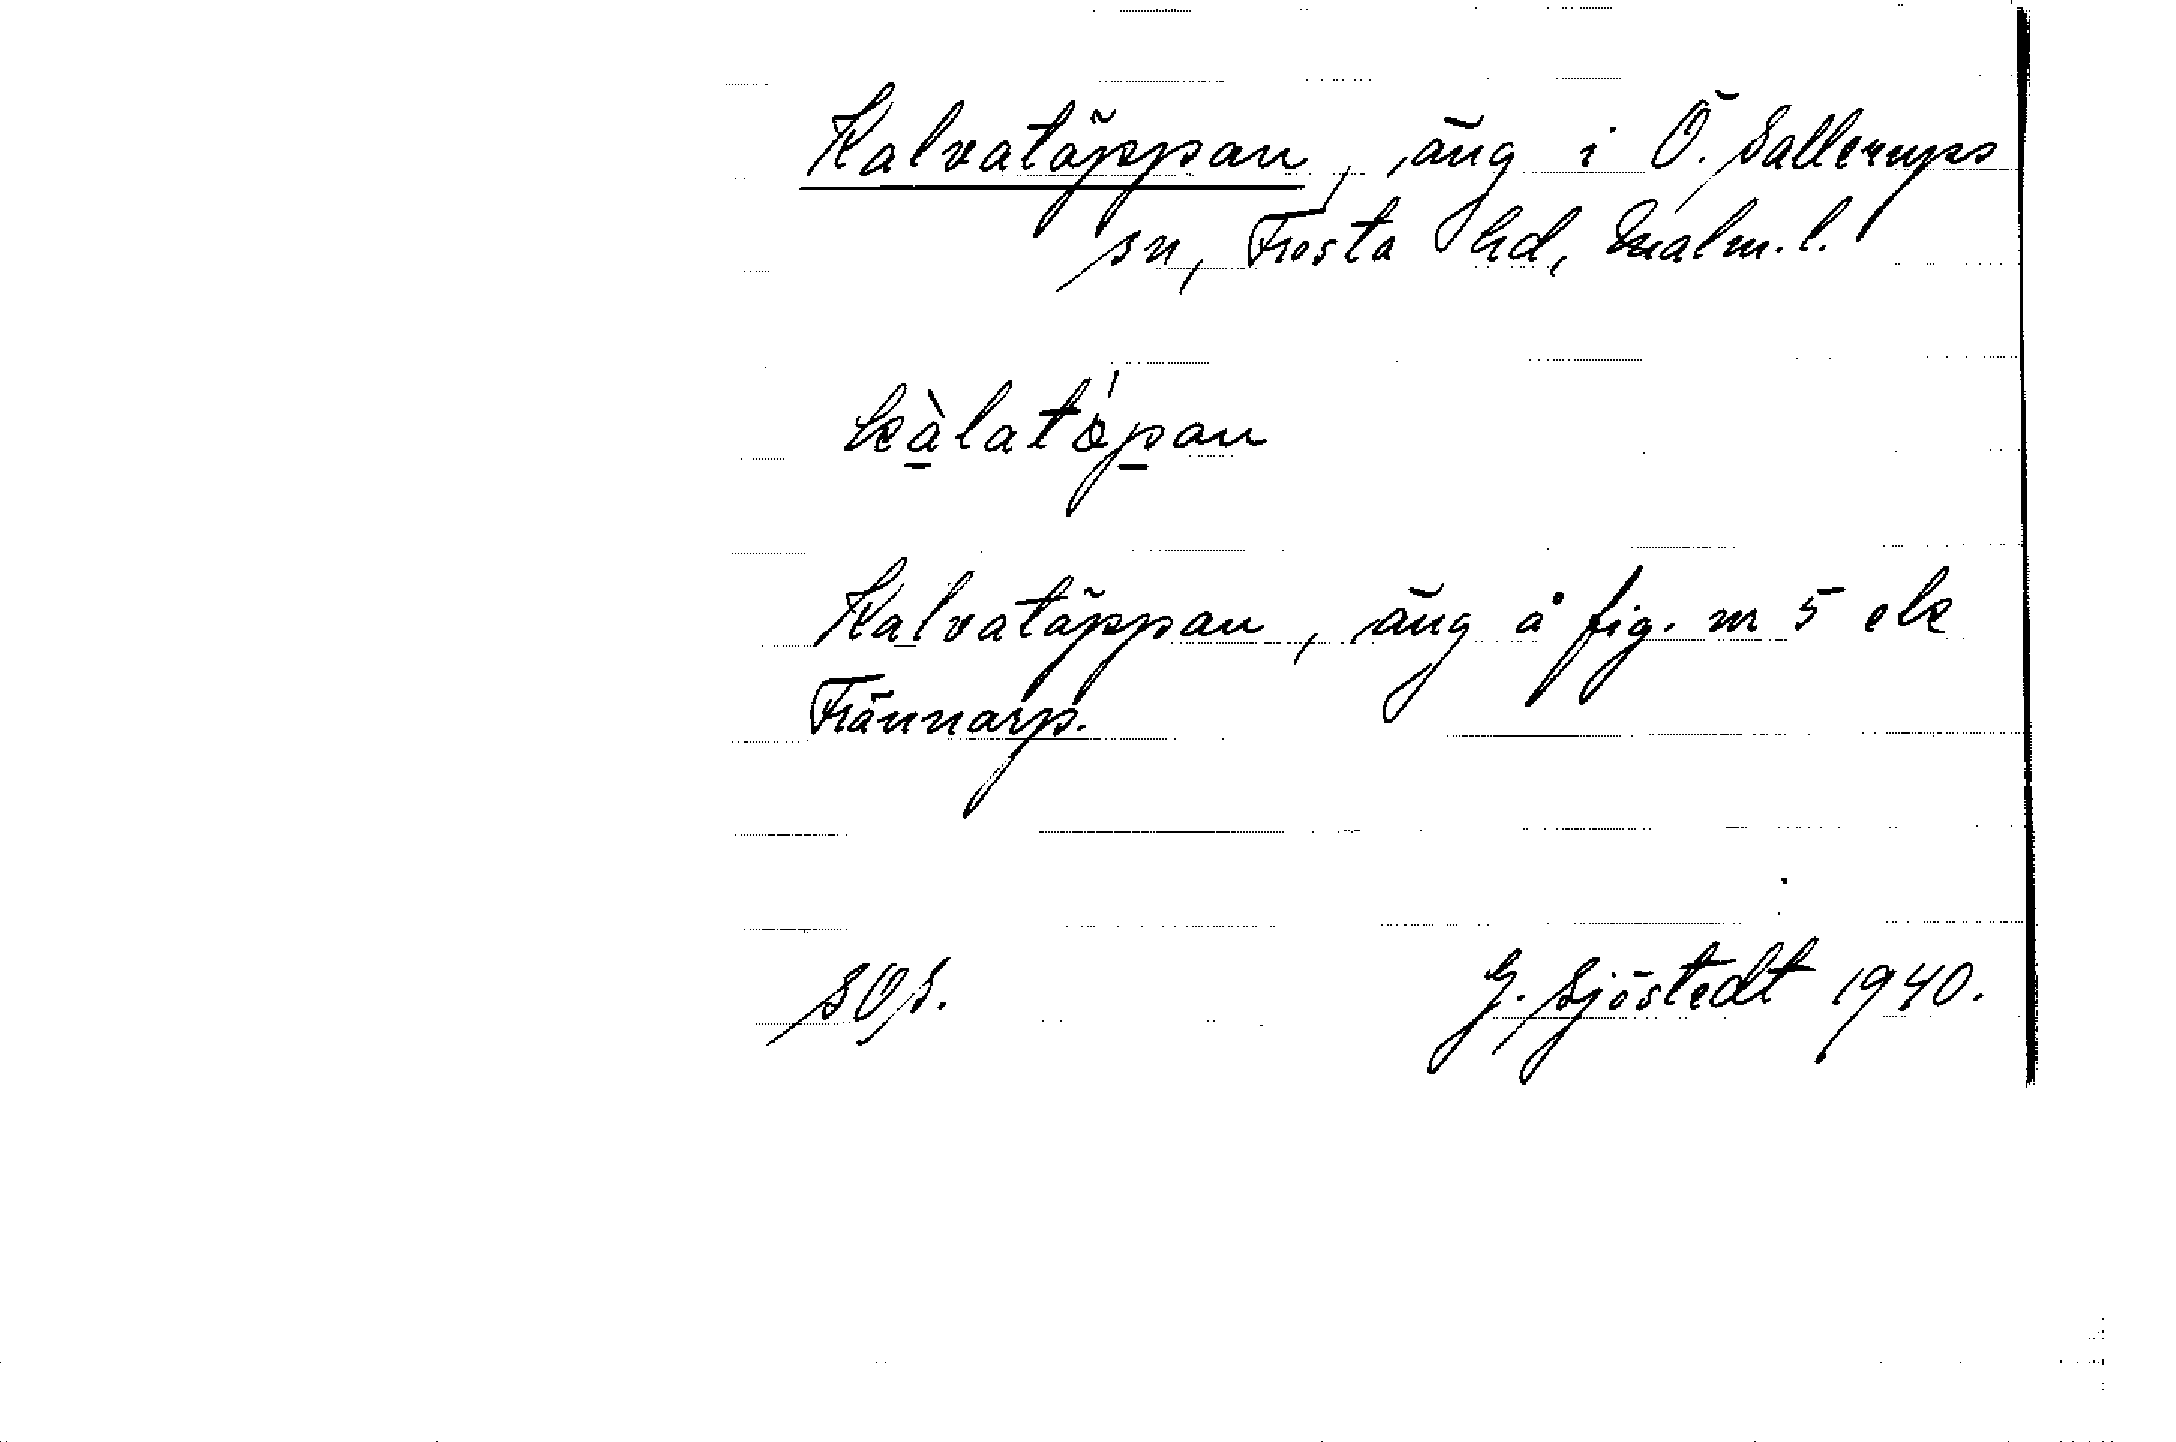 Kalvatäppan, äng i Ö. Sallerups
sn, Frosta hd, Malm. l.
kàlatǿpan
Kalvatäppan, äng å fig. nr 5 ek
Frännarp.
SOS.
G. Sjöstedt 1940.